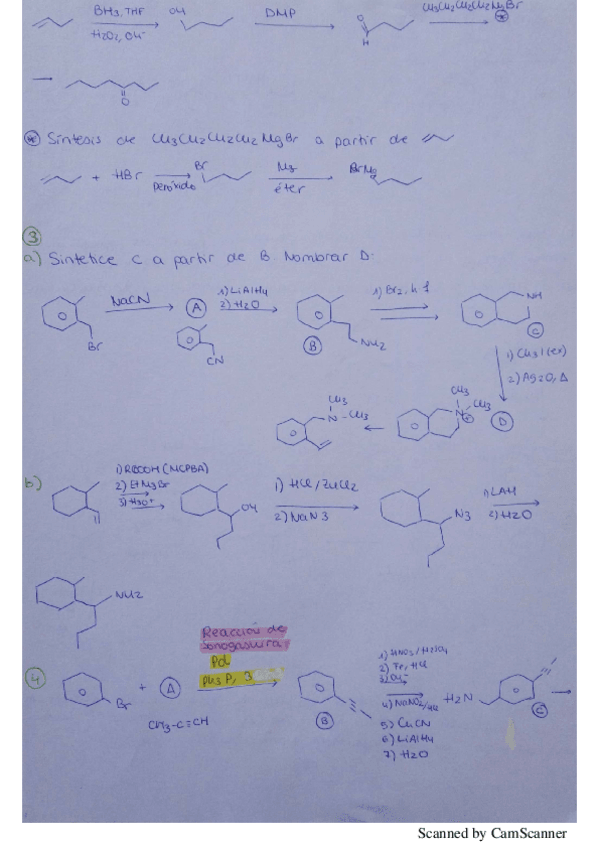 BH3, THF OH DMP CH3CH2CH2CH2MgBr
H2O2, OH- O H *
O
* Síntesis de CH3CH2CH2CH2MgBr a partir de
+ HBr Br Mg BrMg
peróxido éter
3
a) Sintetice C a partir de B Nombrar D:
NaCN A 1) LiAlH4 1) Br2, h
2) H2O NH
Br CN B NH2 C
1) CH3I (ex)
2) Ag2O, Δ
CH3 CH3
N CH3 N CH3 D
b) 1) RCOOH (MCPBA)
2) EtMgBr 1) HCl/ZnCl2 1) LAH
3) H3O+ OH 2) NaN3 N3 2) H2O
NH2
Reacción de
sonogashira
Pd
4 + A Ph3P, 3
Br B
CH3-C≡CH
1) HNO3/H2SO4
2) Fe, HCl
3) OH-
4) NaNO2/HCl H2N C
5) CuCN
6) LiAlH4
7) H2O
Scanned by CamScanner